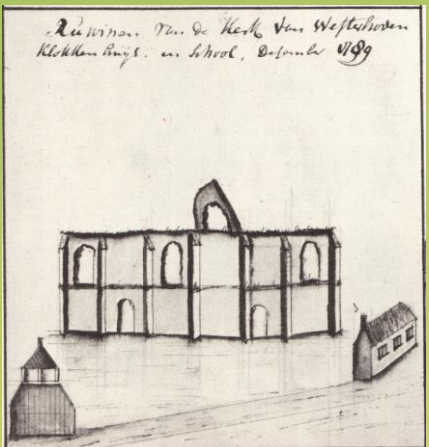 Ruwinen van de Kerk van Westerhoven
Klokkenhuijs. en School, Desember 1789